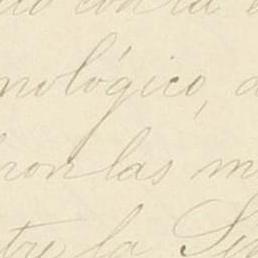 contra
nológico,
ron las m
tre la Se